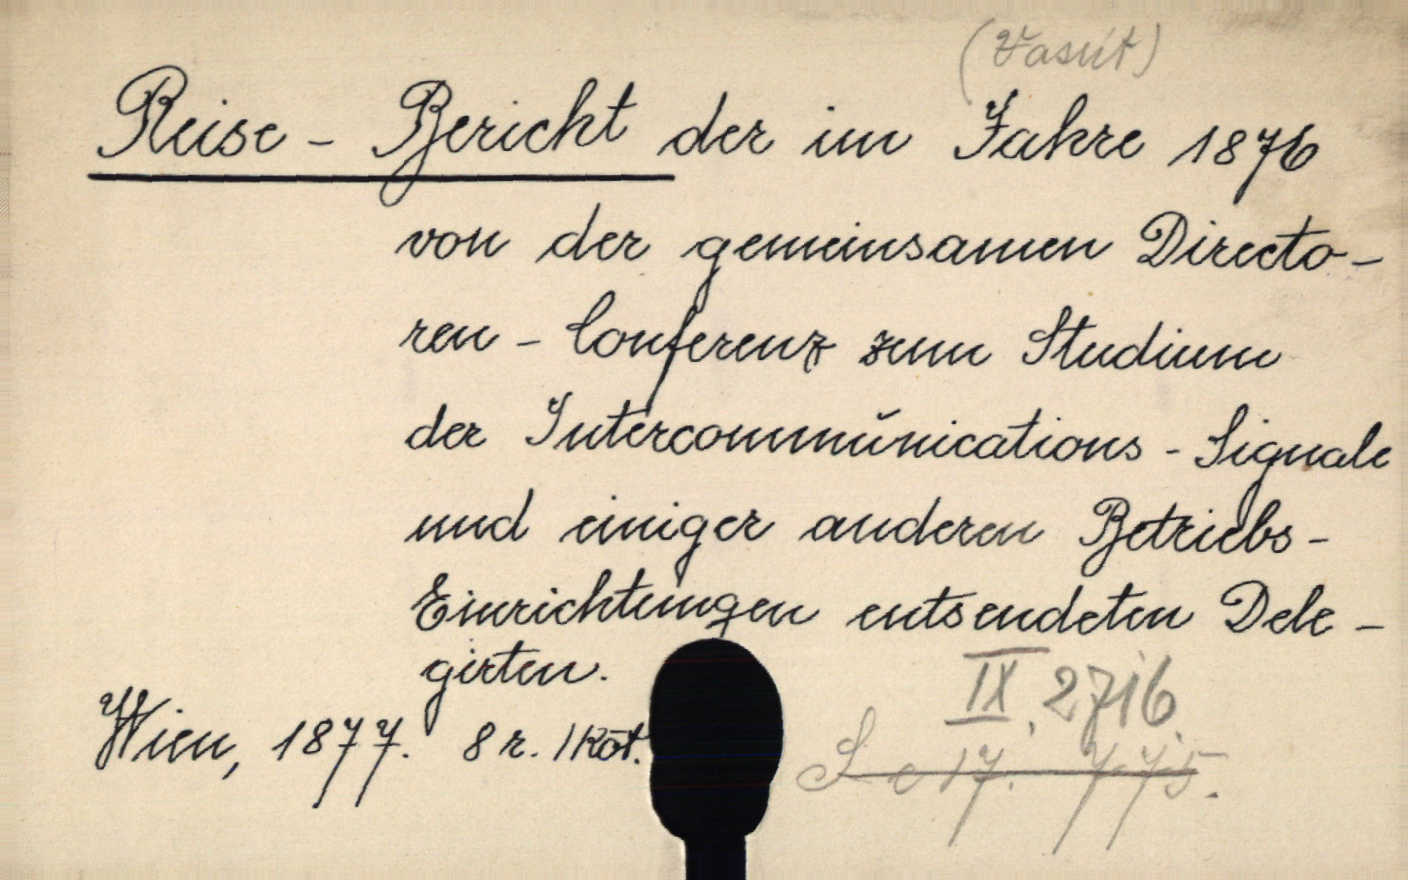 (Vasút)
Reise - Bericht der im Jahre 1876
von der gemeinsamen Directo-
ren - Conferenz zum Studium
der Intercommŭnications - Signale
und einiger anderen Betriebs-
Einrichtungen entsendeten Dele-
girten.
IX. 2716.
Wien, 1877. 8 r. 1 Köt.
S c 17. 775.